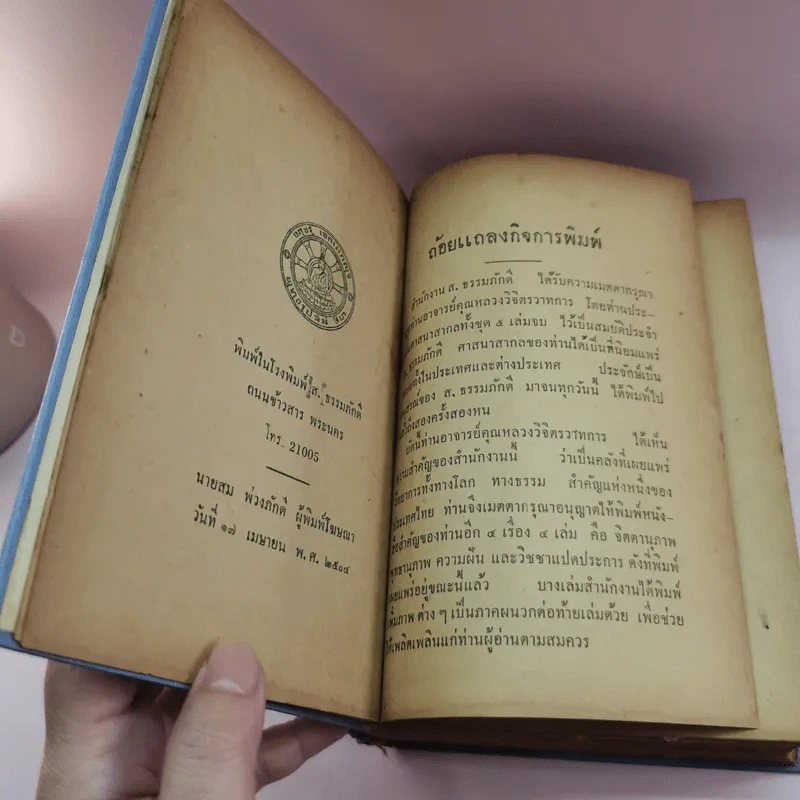 พิมพ์ในโรงพิมพ์ ส. ธรรมภักดี
ถนนข้าวสาร พระนคร
โทร. 21005
นายสม พ่วงภักดี ผู้พิมพ์โฆษณา
วันที่ ๑๗ เมษายน พ.ศ. ๒๕๐๔
ถ้อยแถลงกิจการพิมพ์
สำนักงาน ส. ธรรมภักดี ได้รับความเมตตากรุณา
ท่านอาจารย์คุณหลวงวิจิตรวาทการ โดยท่านประ–
ศาสนาสากลทั้งชุด ๕ เล่มจบ ไว้เป็นสมบัติประจำ
ส. ธรรมภักดี ศาสนาสากลของท่านได้เป็นที่นิยมแพร่
ทั้งในประเทศและต่างประเทศ ประจักษ์เป็น
ของ ส. ธรรมภักดี มาจนทุกวันนี้ ได้พิมพ์ไป
ถึงสองครั้งสองหน
บัดนี้ท่านอาจารย์คุณหลวงวิจิตรวาทการ ได้เห็น
ความสำคัญของสำนักงานนี้ ว่าเป็นคลังที่เผยแพร่
วิทยาการทั้งทางโลก ทางธรรม สำคัญแห่งหนึ่งของ
ประเทศไทย ท่านจึงเมตตากรุณาอนุญาตให้พิมพ์หนัง–
สือสำคัญของท่านอีก ๔ เรื่อง ๔ เล่ม คือ จิตตานุภาพ
พุทธานุภาพ ความฝัน และวิชชาแปดประการ ดังที่พิมพ์
เผยแพร่อยู่ขณะนี้แล้ว บางเล่มสำนักงานได้พิมพ์
เพิ่มภาพ ต่าง ๆ เป็นภาคผนวกต่อท้ายเล่มด้วย เพื่อช่วย
ให้เพลิดเพลินแก่ท่านผู้อ่านตามสมควร